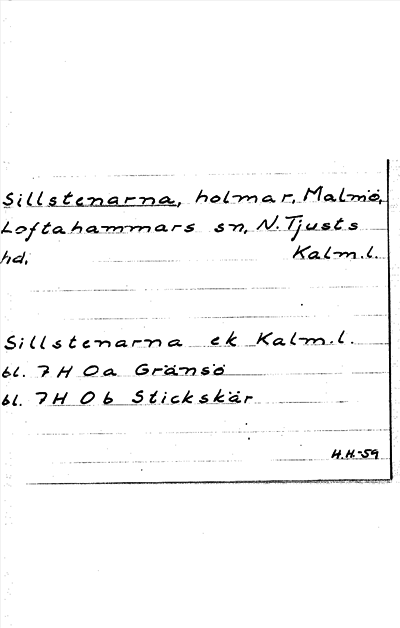 Sillstenarna, holmar, Malmö,
Loftahammars sn, N. Tjusts
hd. Kalm.l.
Sillstenarna ek Kalm.l.
bl. 7H 0a Gränsö
bl. 7H 0b Stickskär
H.H.-59